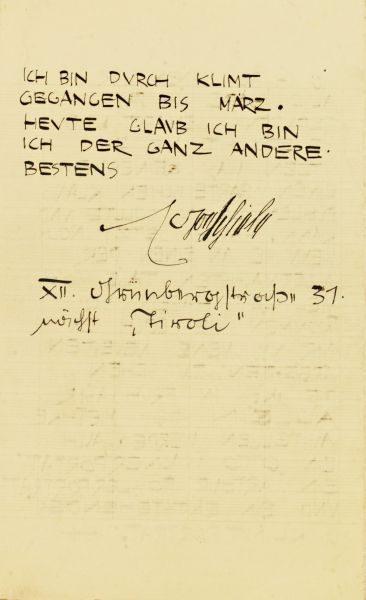 ICH BIN DVRCH KLIMT
GEGANGEN BIS MÄRZ.
HEVTE GLAVB ICH BIN
ICH DER GANZ ANDERE.
BESTENS
XII. Grünbergstrasse 31.
nächst „Tivoli“